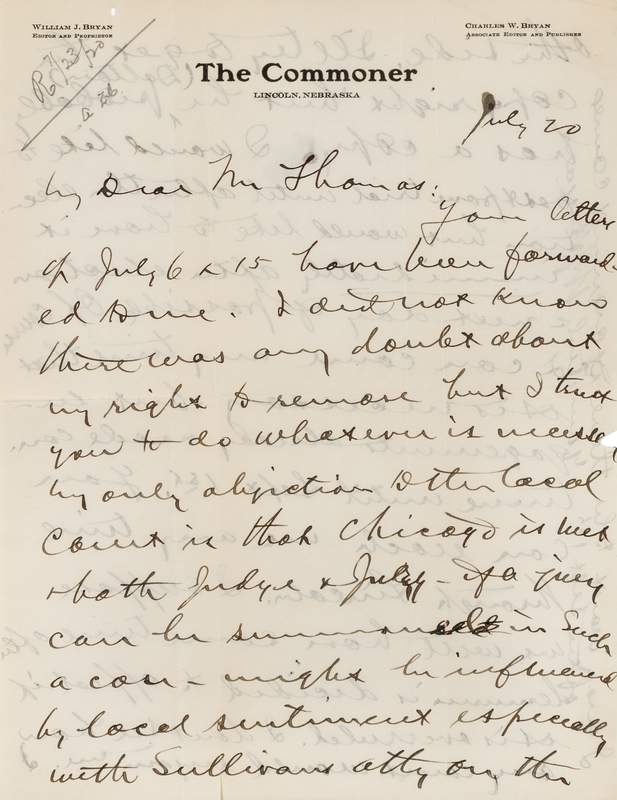 WILLIAM J. BRYAN
EDITOR AND PROPRIETOR
CHARLES W. BRYAN
ASSOCIATE EDITOR AND PUBLISHER
R 7/23/20
The Commoner
LINCOLN, NEBRASKA
July 20
My Dear Mr Thomas:
Your letters
of July 6 & 15 have been forward-
ed to me. I did not know
there was any doubt about
my right to remove but I trust
you to do whatever is necessy
My only objection to the local
court is that Chicago is wet
& both Judge & July - If a jury
can be summoned in such
a case - might be influenced
by local sentiment especially
with Sullivans atty on the